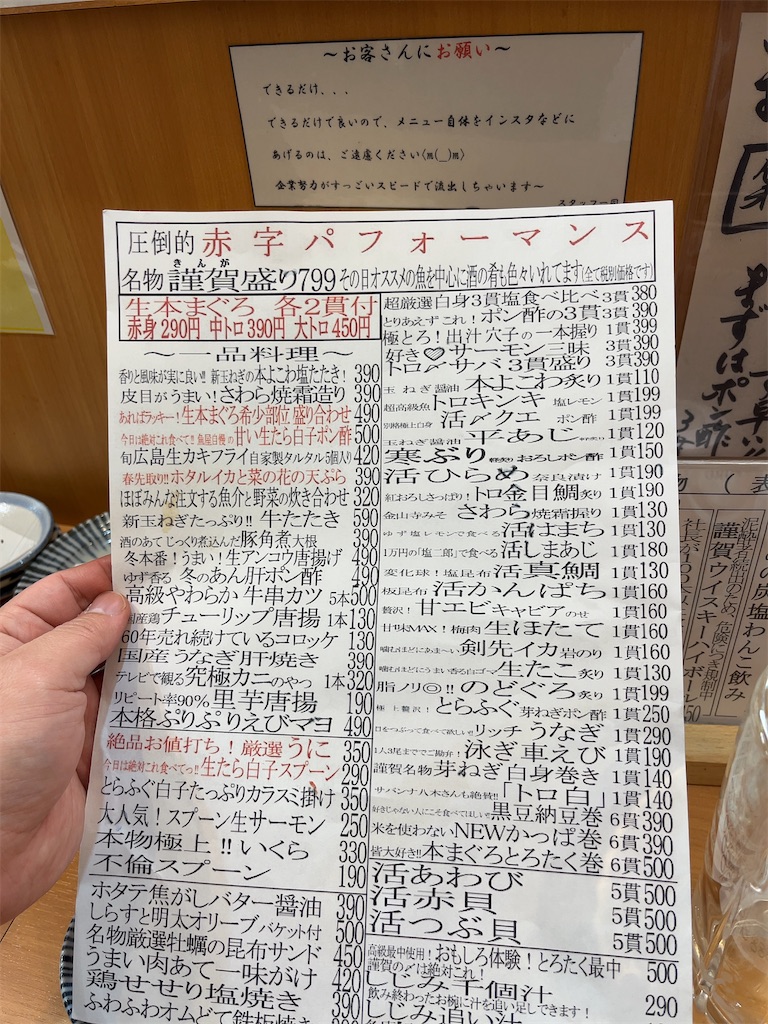 ～お客さんにお願い～
できるだけ、、、
できるだけで良いので、メニュー自体をインスタなどに
あげるのは、ご遠慮ください
企業努力がすっごいスピードで流出しちゃいます～
スタッフ一同
圧倒的 赤字パフォーマンス
きんが
名物 謹賀盛り799 その日オススメの魚を中心に酒の肴も色々いれてます(全て税別価格です)
生本まぐろ 各2貫付
赤身290円 中トロ390円 大トロ450円
～一品料理～
香りと風味が実に良い!! 新玉ねぎの本よこわ塩たたき! 390
皮目がうまい!さわら焼霜造り 390
あればラッキー!生本まぐろ希少部位 盛り合わせ 490
今日は絶対これ食べて!! 魚屋自慢の甘い生たら白子ポン酢 500
旬広島生カキフライ自家製タルタル5個入り 420
春先取り!!ホタルイカと菜の花の天ぷら 390
ほぼみんな注文する魚介と野菜の炊き合わせ 320
新玉ねぎたっぷり!! 牛たたき 590
酒のあてじっくり煮込んだ豚角煮大根 390
冬本番!うまい!生アンコウ唐揚げ 490
ゆず香る 冬のあん肝ポン酢 490
高級やわらか 牛串カツ 5本500
国産鶏チューリップ唐揚 1本130
60年売れ続けているコロッケ 130
国産うなぎ肝焼き 390
テレビで観る究極カニのやつ 1本320
リピート率90%里芋唐揚 190
本格ぷりぷりえびマヨ 490
絶品お値打ち!厳選うに 350
今日は絶対これ食べてっ!!生たら白子スプーン 290
とらふぐ白子たっぷりカラスミ掛け 350
大人気!スプーン生サーモン 250
本物極上!!いくら 330
不倫スプーン 190
ホタテ焦がしバター醤油 390
しらすと明太オリーブバケット付 500
名物厳選牡蠣の昆布サンド 450
うまい肉あて一味がけ 420
鶏せせり塩焼き 390
ふわふわオムどて鉄板焼き 390
超厳選白身3貫塩食べ比べ 3貫380
とりあえずこれ!ポン酢の3貫 3貫390
極とろ!出汁穴子の一本握り 1貫399
好き♡サーモン三昧 3貫390
トロ〆サバ3貫盛り 3貫390
玉ねぎ醤油 本よこわ炙り 1貫110
超高級魚 トロキンキ 塩レモン 1貫199
別格極上白身 活〆クエ ポン酢 1貫199
玉ねぎ醤油 平あじ 1貫120
寒ぶり 軽炙り おろしポン酢 1貫150
活ひらめ 奈良漬け 1貫190
紅おろしさっぱり!トロ金目鯛炙り 1貫190
金山寺みそ さわら焼霜握り 1貫130
ゆず塩レモンで食べる活はまち 1貫130
1万円の「塩二郎」で食べる 活しまあじ 1貫180
変化球!塩昆布 活真鯛 1貫130
板昆布 活かんぱち 1貫160
贅沢!甘エビキャビアのせ 1貫160
甘味MAX!梅肉 生ほたて 1貫160
噛むほどにあま～い 剣先イカ岩のり 1貫160
噛むほどにうまい香る白ゴマ 生たこ炙り 1貫130
脂ノリ◎!! のどぐろ炙り 1貫199
極上贅沢!とらふぐ 芽ねぎポン酢 1貫250
目をつぶって食べて欲しい!!リッチうなぎ 1貫290
1人3尾まででご勘弁!泳ぎ車えび 1貫190
謹賀名物芽ねぎ白身巻き 1貫140
サバンナ八木さんも絶賛!!「トロ白」 1貫140
好きじゃない人にこそ食べてほしい!!黒豆納豆巻 6貫390
米を使わないNEWかっぱ巻 6貫390
皆大好き!!本まぐろとろたく巻 6貫500
活あわび 5貫500
活赤貝 5貫500
活つぶ貝 5貫500
高級最中使用!おもしろ体験!とろたく最中 500
謹賀の〆は絶対これ!
しじみ千個汁 290
飲み終わったお椀に汁を追い足しできます!
しじみ追い汁
まずはポン酢